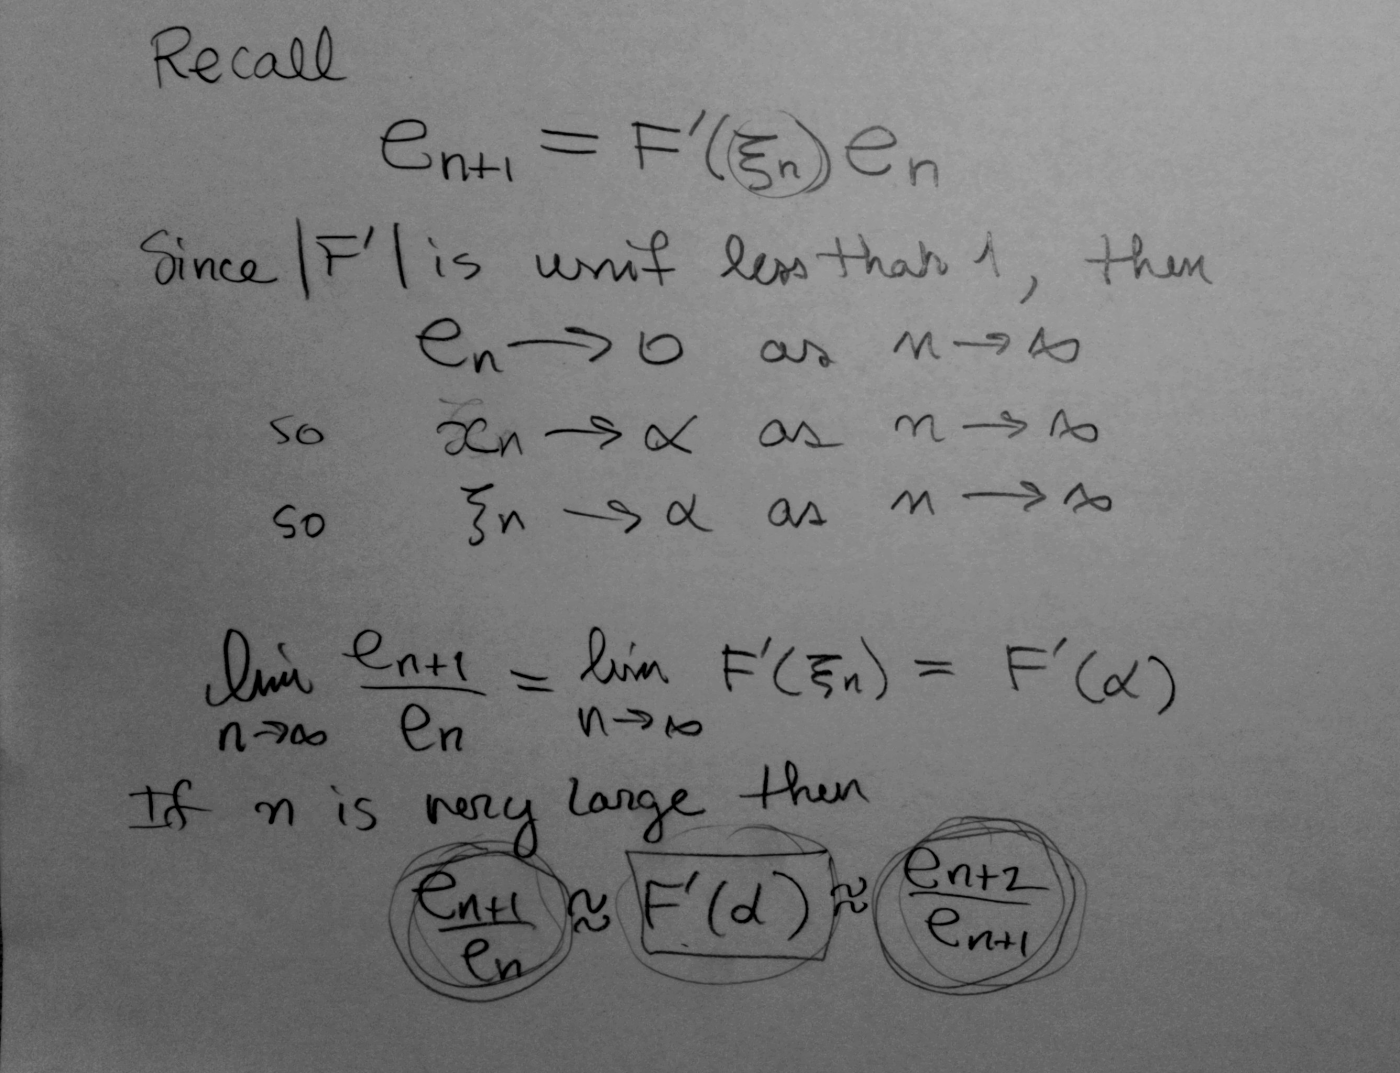 Recall
e_{n+1} = F'(ξ_n) e_n
Since |F'| is unif less than 1, then
e_n → 0 as n → ∞
so x_n → α as n → ∞
so ξ_n → α as n → ∞
lim_{n→∞} e_{n+1}/e_n = lim_{n→∞} F'(ξ_n) = F'(α)
If n is very large then
e_{n+1}/e_n ≈ F'(α) ≈ e_{n+2}/e_{n+1}